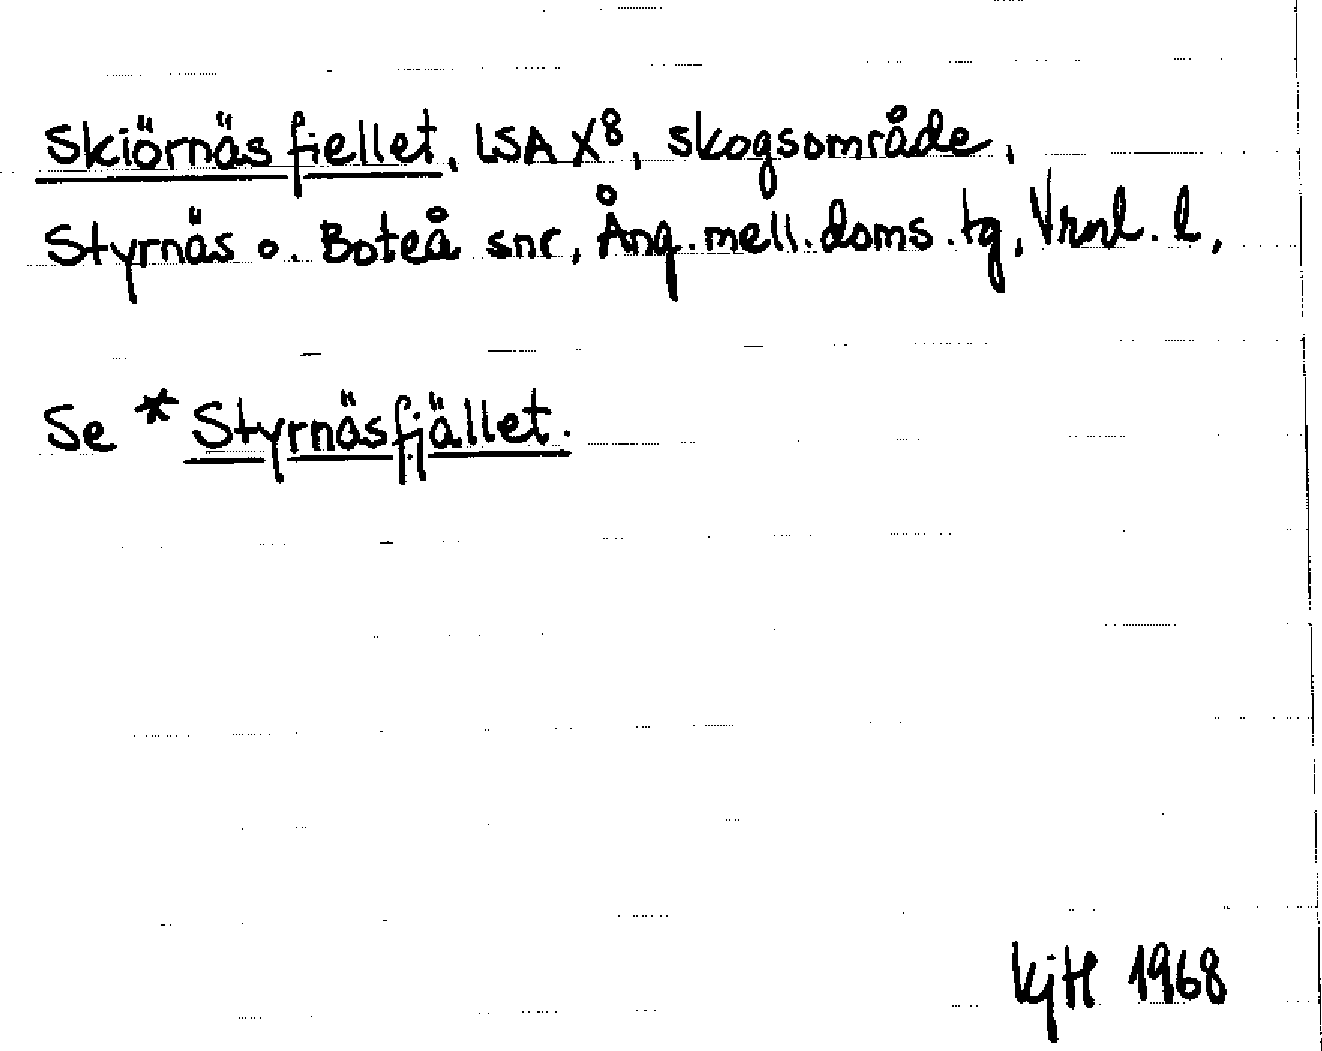 Skiörnäs fiellet, LSA X8, skogsområde,
Styrnäs o. Boteå snr, Ång. mell. doms. tg, Vrnl. l,
Se * Styrnäsfjället.
KjH 1968